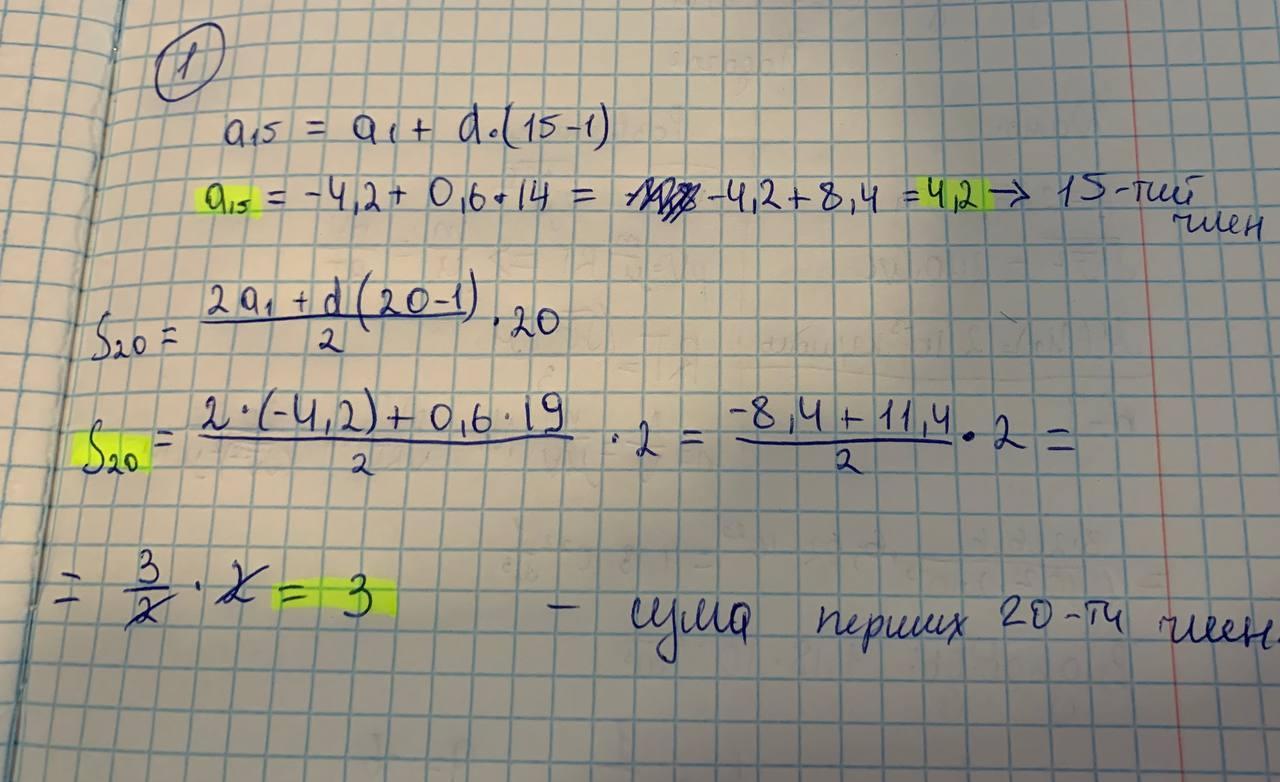 1
a₁₅ = a₁ + d·(15-1)
a₁₅ = -4,2 + 0,6·14 = -4,2 + 8,4 = 4,2 → 15-тий член
S₂₀ = (2a₁ + d(20-1))/2 · 20
S₂₀ = (2·(-4,2) + 0,6·19)/2 · 2 = (-8,4 + 11,4)/2 · 2 =
= 3/2 · 2 = 3 - сума перших 20-ти член